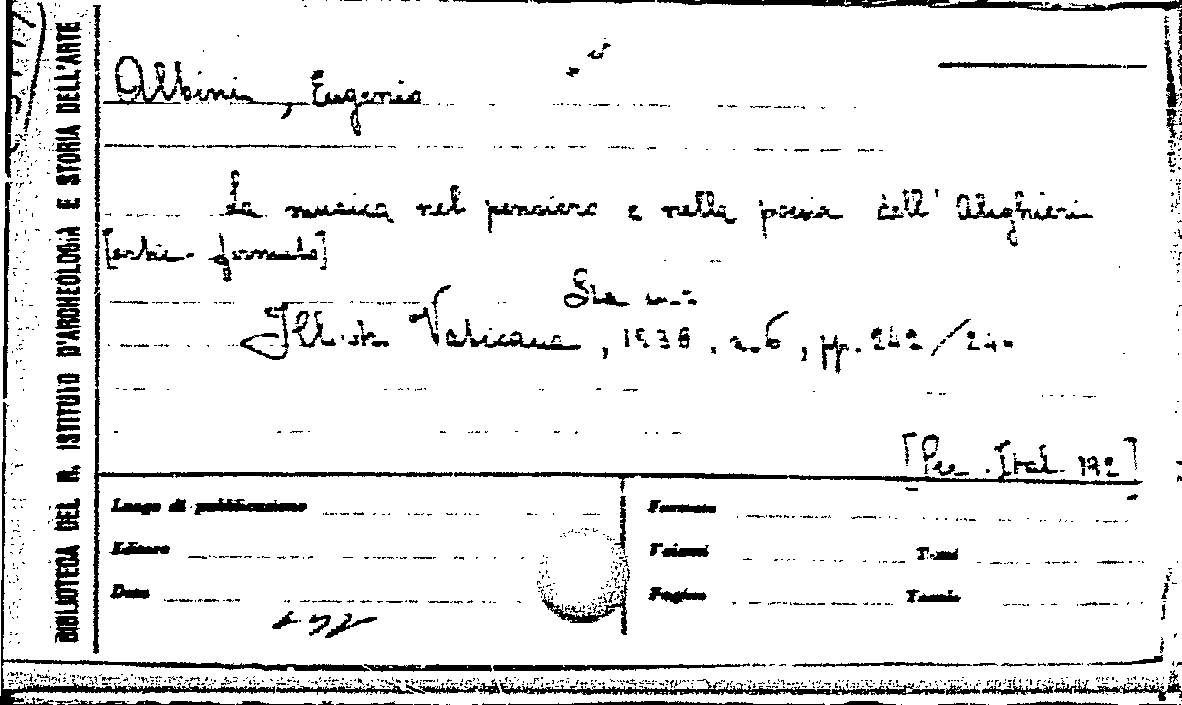 BIBLIOTECA DEL R. ISTITUTO D'ARCHEOLOGIA E STORIA DELL'ARTE
Albini, Eugenio
La musica nel pensiero e nella poesia dell'Alighieri
Vaticana, 1936, n. 6, pp. 242/24
[Per. Ital. 192]
Luogo di pubblicazione
Formato
Editore
Volumi
Tomi
Data
Pagine
Tavole